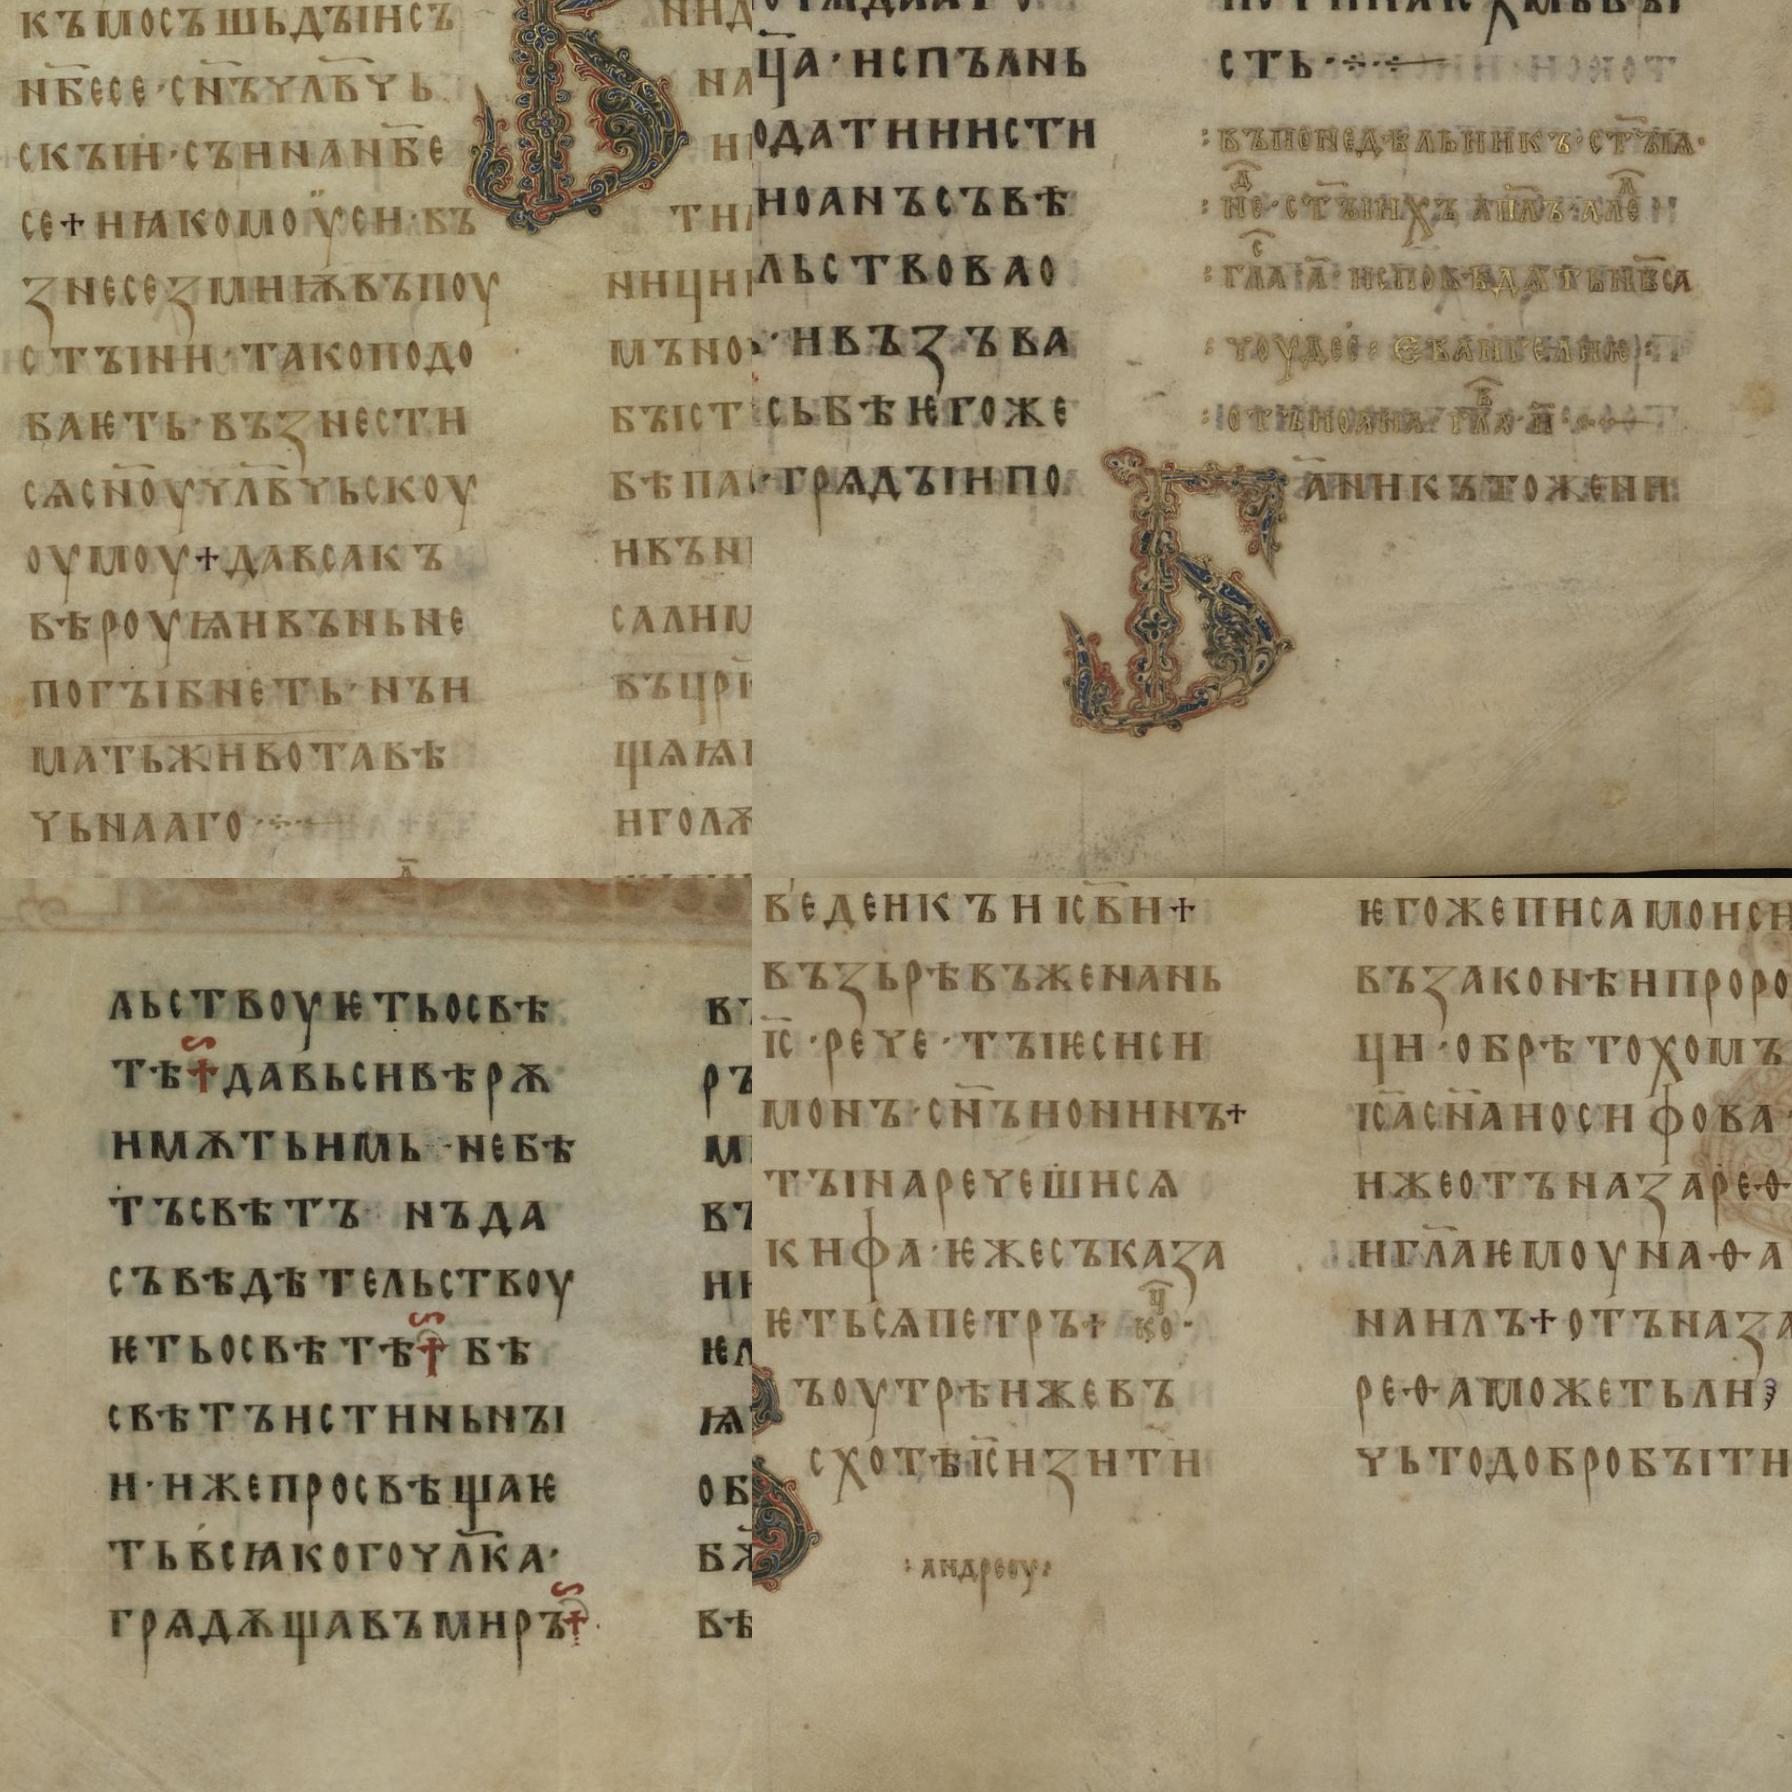 къмосъшьдꙑисъ
нб҃есе·сн҃ъчл҃вчь
скꙑи·съиинанб҃е
се+иꙗкомоѵ̈сеи·въ
знесезмиѭвъпоу
стꙑни·такоподо
баѥть·възнести
сѧсн҃оучл҃вчьскоу
оумоу+давсакъ
вѣроуꙗивъньне
погꙑбнеть·нъи
матьживотавѣ
чьнааго
на
мъно
бꙑст
бѣпа
ивън
салим
щѧꙗ
иголѫ
ц҃а·испълнь
одатииисти
иоанъсъвѣ
льствовао
·ивъзъва
сьбѣѥгоже
·грѧдꙑипо
сть·
:въпонедѣльникъ·ст҃ꙑѩ·
:неⷣ·ст҃ꙑихъап҃лъ·алеⷧ
:глаⷭ·а҃·исповѣдѧтьнб҃са
:чоудес:еваньгелиѥ:
:отъиоана·глаⷡ·и҃·
Ба҃никътожени
льствоуѥтьосвѣ
тѣ+давьсивѣрѫ
имѫтьимь·небѣ
тъсвѣтъ·нъда
съвѣдѣтельствоу
ѥтьосвѣтѣ+бѣ
свѣтъистиньнꙑ
и·ижепросвѣщаѥ
тьвсꙗкогочл҃ка·
грѧдѫщавъмиръ+
въ
ръ
въ
ни
об
вѣ
ведеикъиіс҃ви+
възьрѣвъженань
іс҃·рече·тꙑѥсиси
монъ·сн҃ъионинъ+
тꙑнаречешисѧ
кифа·ѥжесъказа
ѥтьсѧпетръ+коⷰ·
ъоутрѣижевъ
схотѣіс҃изити
:андреоу:
ѥгожеписамоиси
взаконѣипроро
ци·обрѣтохомъ
іс҃асн҃аиосифова
ижеотъназареѳ
игл҃аѥмоунаѳа
наилъ+отъназа
реѳаможетьли
чьтодобробꙑти